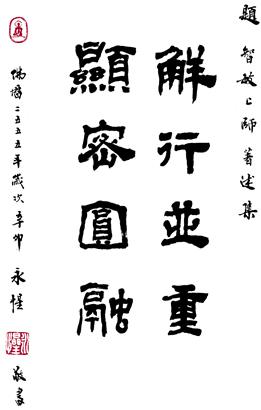 題智敏上師著述集
解行並重
顯密圓融
佛曆二五五五年歲次辛卯
永惺
敬書